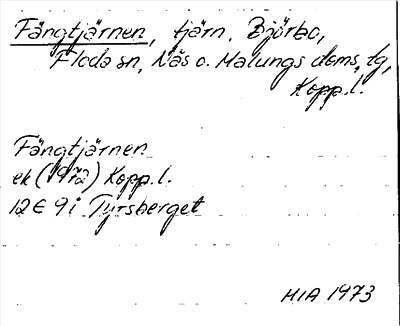 Fängtjärnen, tjärn. Björbo,
Floda sn, Nås o. Malungs doms.tg,
Kopp.l.
Fängtjärnen
ek (1972) Kopp.l.
12E 9i Tyrsberget
MIA 1973